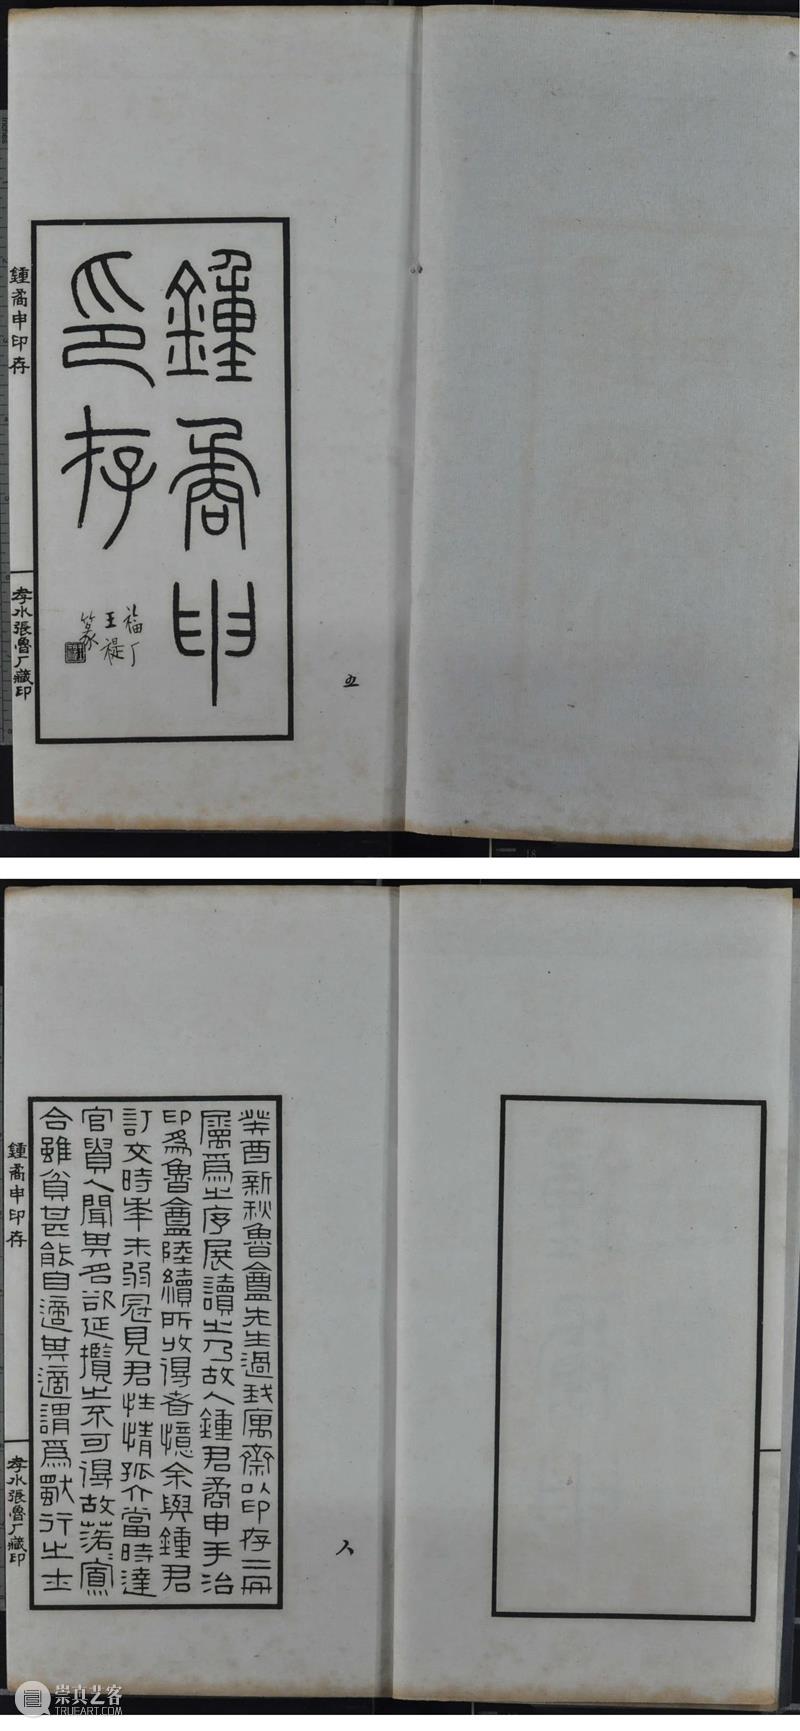 鍾矞申
印存
福厂
王禔
篆
鍾矞申印存
孝水張魯厂藏印
五
癸酉新秋魯盦先生過我寓齋以印存二冊
屬爲之序展讀之乃故人鍾君矞申手治
印爲魯盦陸續所收得者憶余與鍾君
訂交時年未弱冠見君性情孤介當時達
官貴人聞其名欲延攬之不可得故落〻寡
合雖貧甚能自適其適謂爲獨行之士
鍾矞申印存
孝水張魯厂藏印
人
崇真艺客
TRUEART.COM